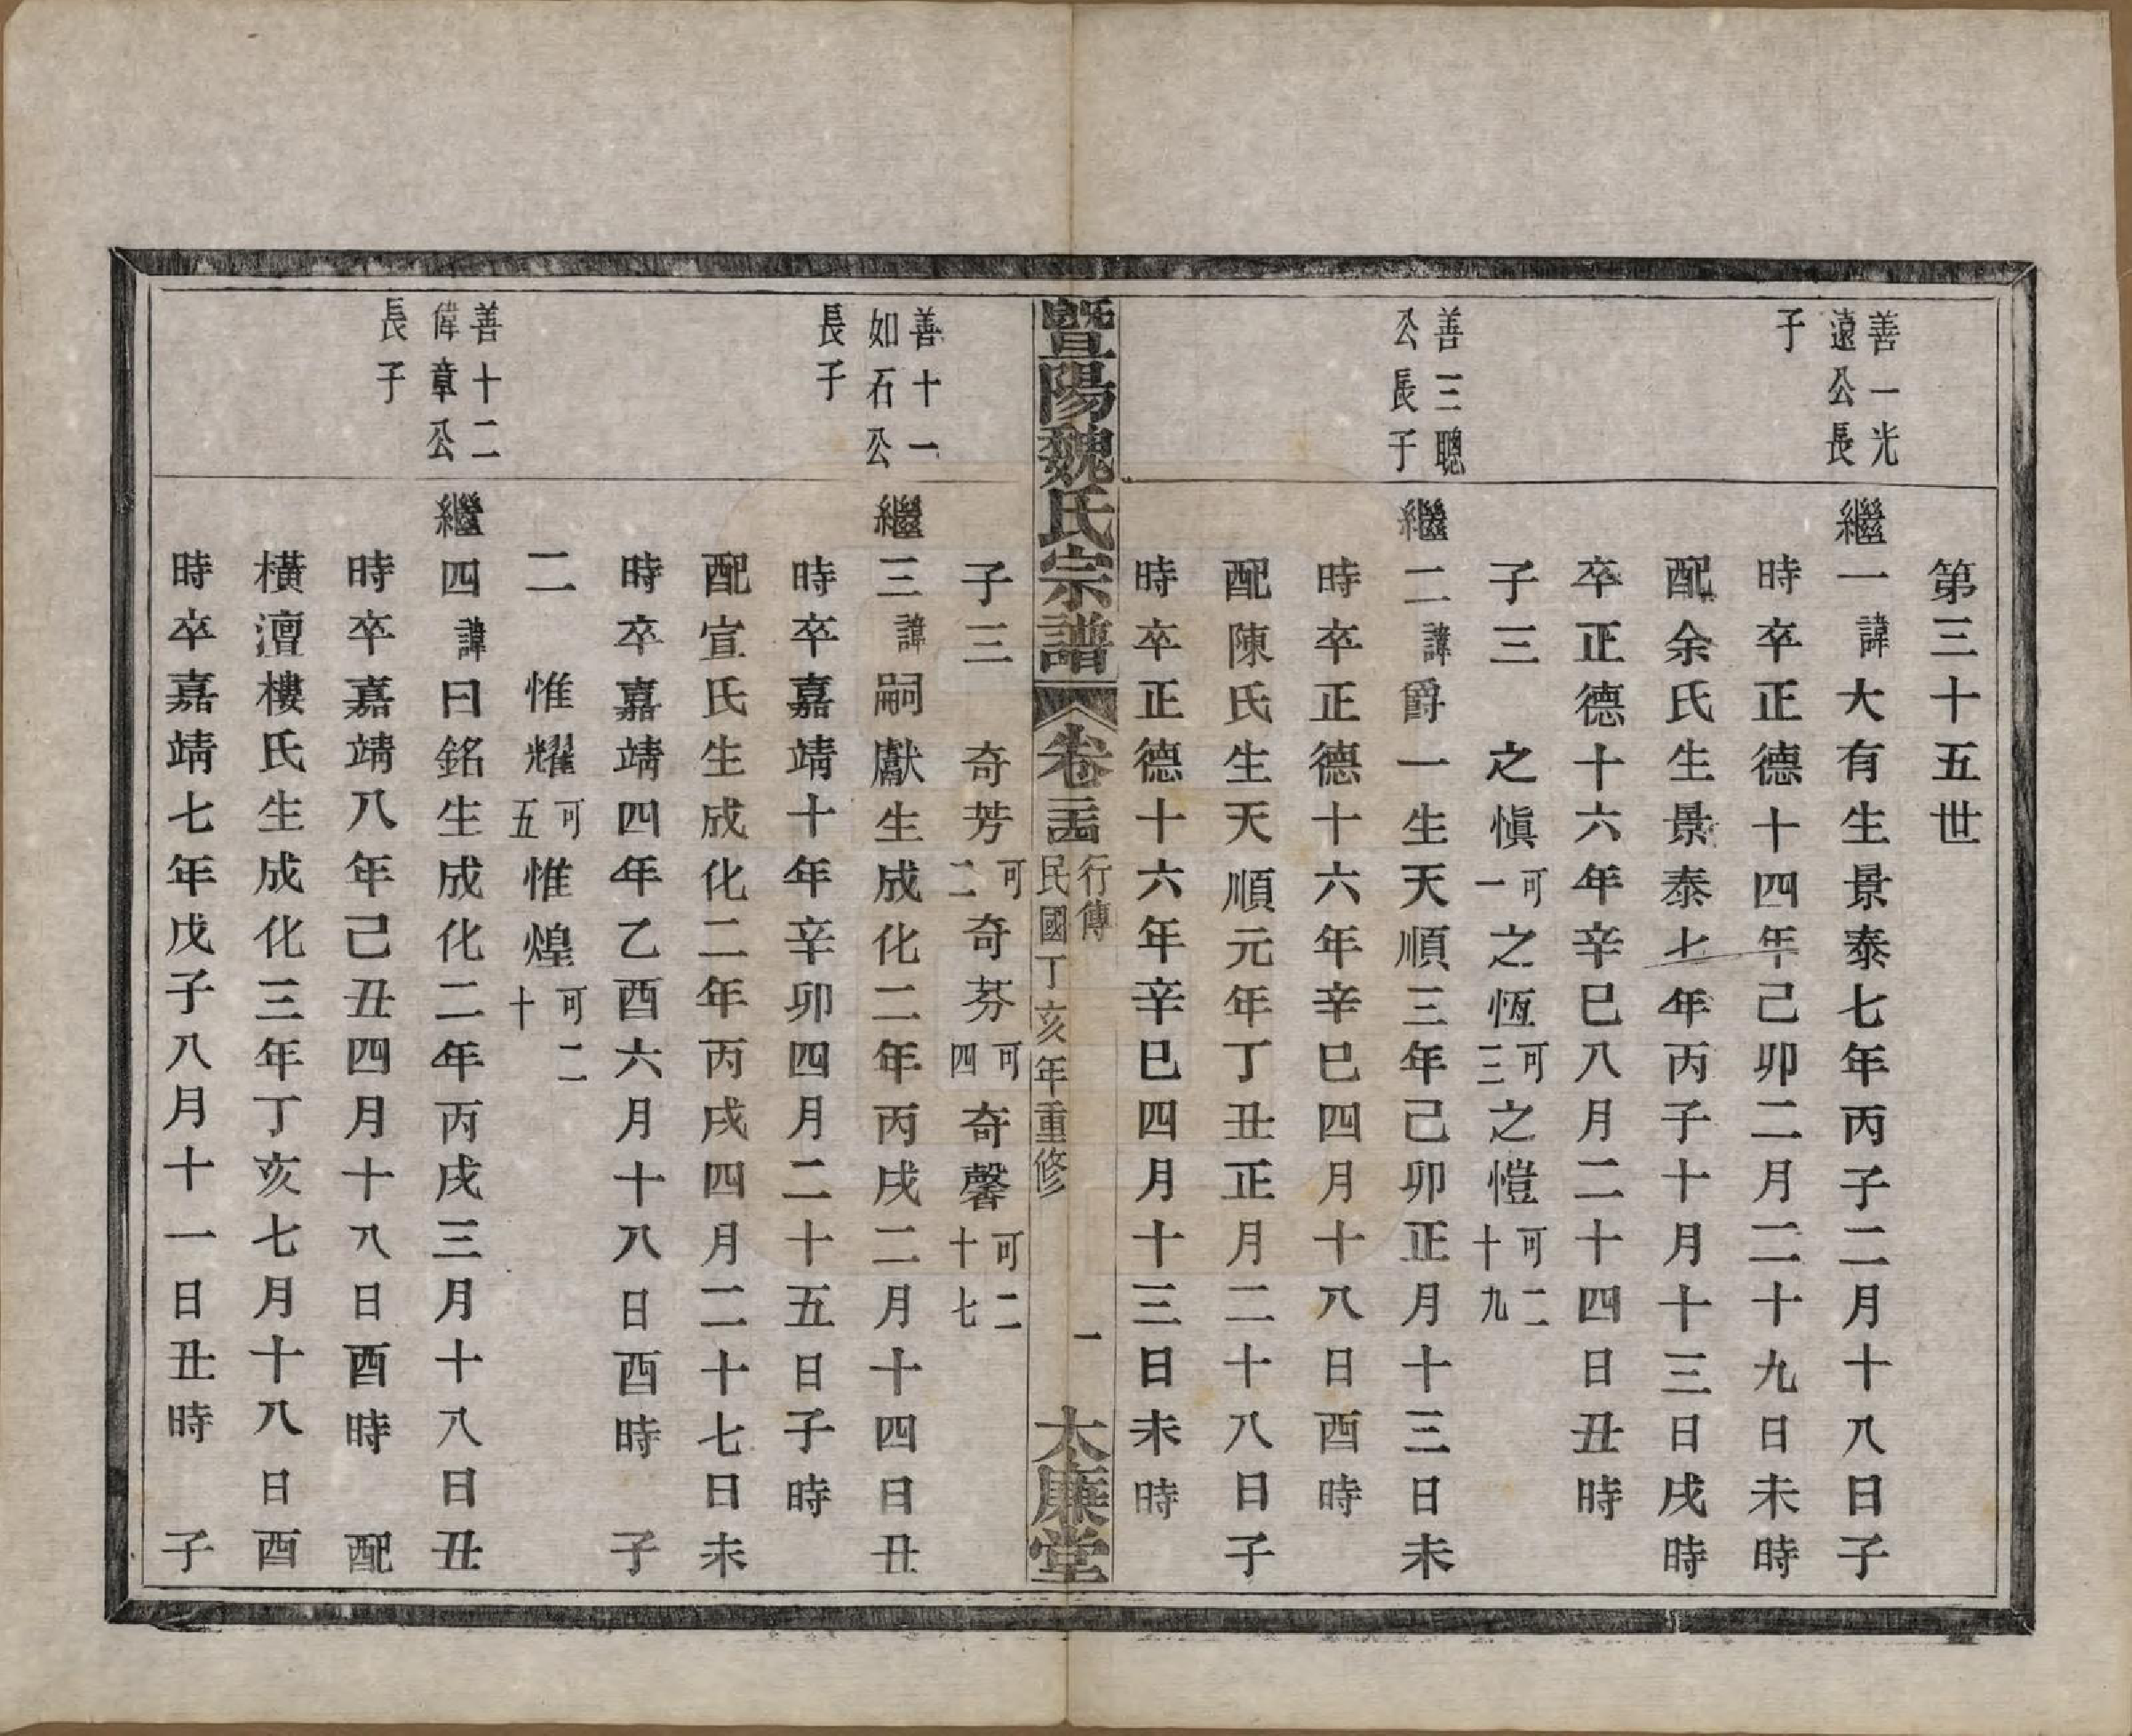 第三十五世
善一光
遠公長
子
繼一諱大有生景泰七年丙子二月十八日子
時卒正德十四年己卯二月二十九日未時
配余氏生景泰七年丙子十月十三日戌時
卒正德十六年辛巳八月二十四日丑時
子三 之愼可一之恆可三之愷可二十九
善三聰
公長子
繼二諱爵一生天順三年己卯正月十三日未
時卒正德十六年辛巳四月十八日酉時
配陳氏生天順元年丁丑正月二十八日子
時卒正德十六年辛巳四月十三日未時
暨陽魏氏宗譜 卷 行傳 民國丁亥年重修 一 大廉堂
子三 奇芳可二奇芬可四奇馨可二十七
善十一
如石公
長子
繼三諱嗣獻生成化二年丙戌二月十四日丑
時卒嘉靖十年辛卯四月二十五日子時
配宣氏生成化二年丙戌四月二十七日未
時卒嘉靖四年乙酉六月十八日酉時 子
二 惟耀可五惟煌可二十
善十二
偉章公
長子
繼四諱曰銘生成化二年丙戌三月十八日丑
時卒嘉靖八年己丑四月十八日酉時 配
橫澶樓氏生成化三年丁亥七月十八日酉
時卒嘉靖七年戊子八月十一日丑時 子